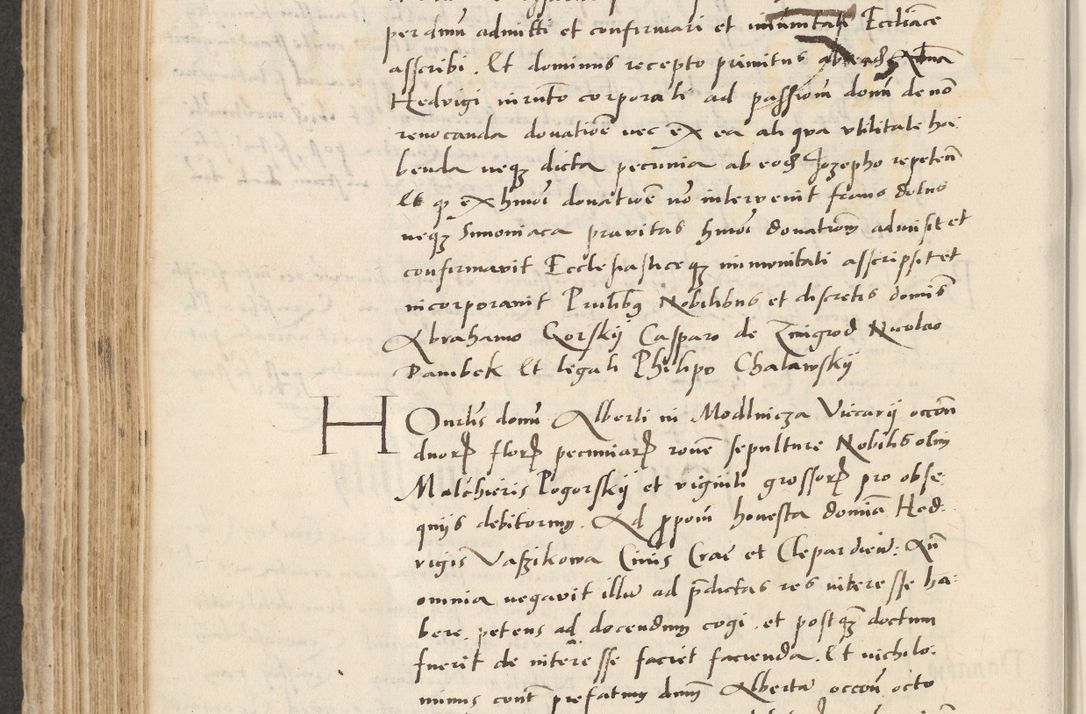 per dmū admitti et confirmari et imūnitati Eccliāce
asscribi . Et dominus recepto primitus ab eadē
Hedvigi iurūto corporali ad passionē donū de nō
revocanda donatioē nec ex ea aliqua utilitate ha:
benda neqȝ dicta pecunia ab eodē Jozepho repetenđ
Et qȝ ex hmōi donatioē nō intervenit fraus dolus
neqȝ Simoniaca pravitas hmōi donationē admisit et
confirmavit Ecclesiasticeqȝ immunitati asscripsit et
incorporavit Pntibȝ Nobilibus et discretis domis
Abrahamo Gorskÿ Casparo de Zmigrod Nicolao
Dambek Et legali Philipo Chalawskÿ
HOnrlis domū Alberti in Modlnicza Viccarÿ occōn
duorȝ florȝ pecuniarȝ roñe sepulture Nobilis olim
Malchieris Pogorskÿ et viginti grossorȝ pro obse:
quÿs debitorum . Ad ppōm honesta domīa Hed:
vigis Vaszikowa Civis Crac et Clepardieñ . Qñ
omnia negavit illū ad pđictas res interesse ha:
bere . petens ad docendum cogi . et postqȝ doctum
fuerit de interesse faciet facienda . Et nichilo:
minus cont̄ prefatum dmū Albertū occoñ octo